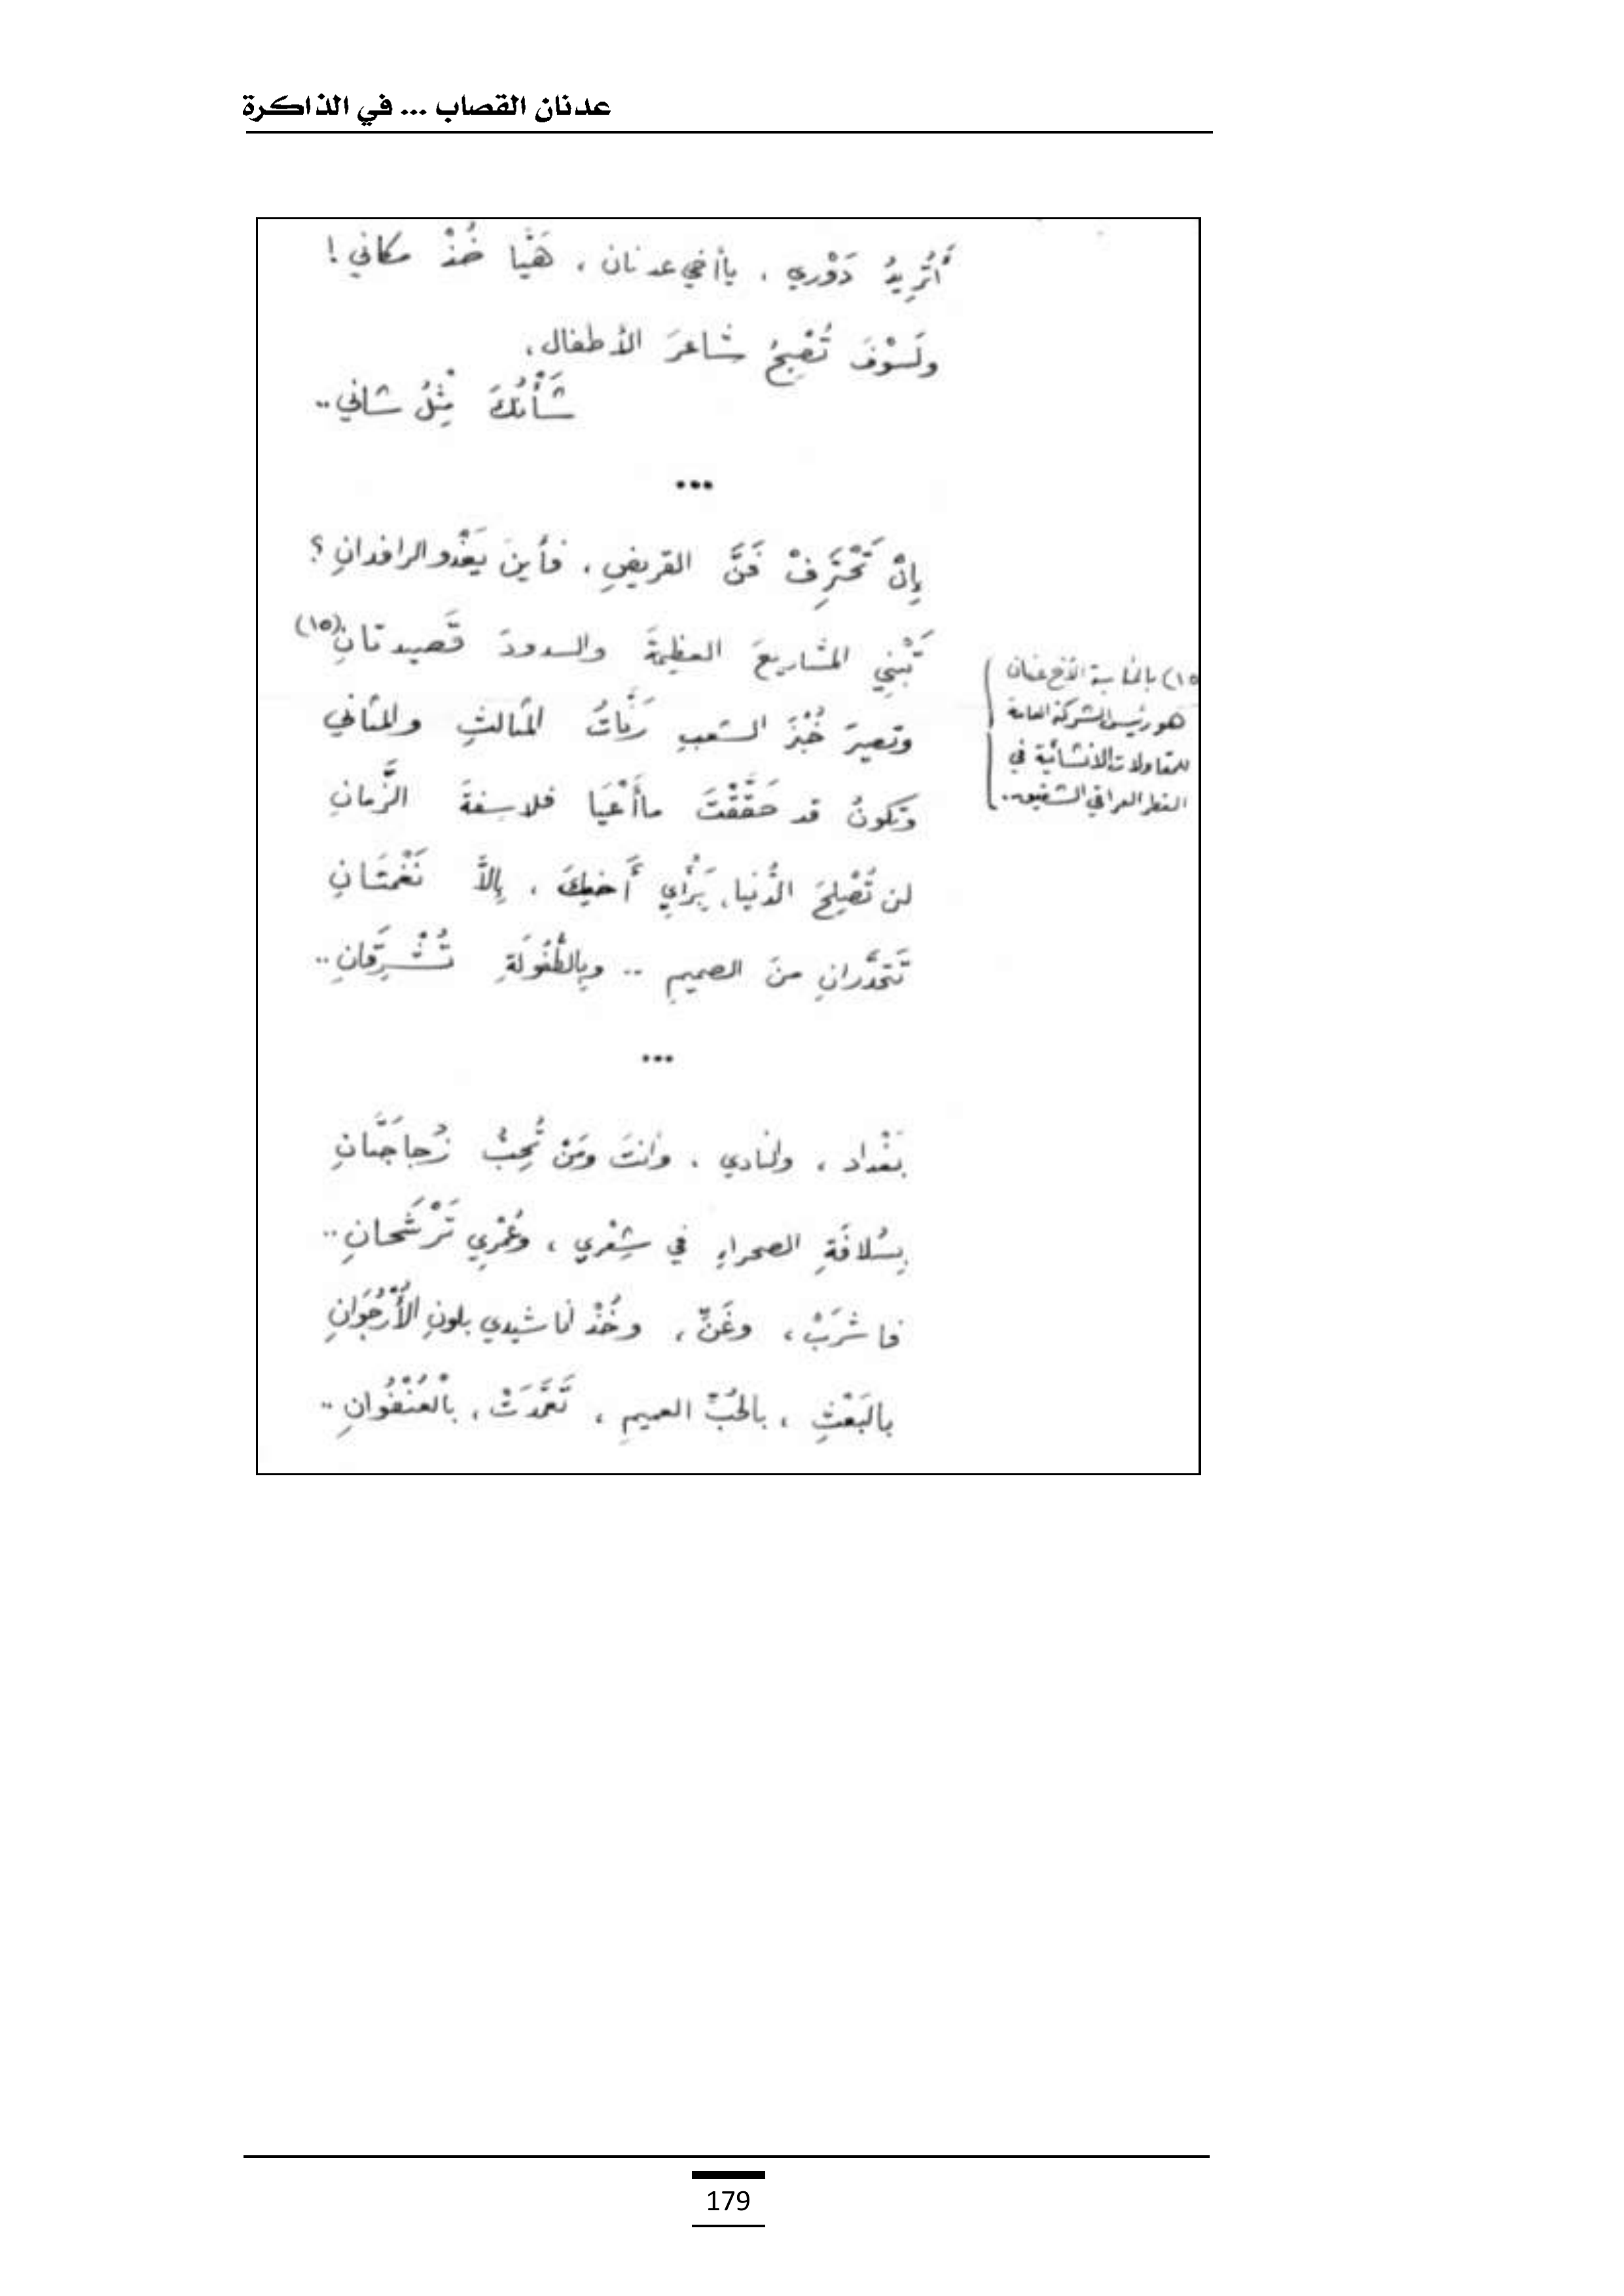 عدنان القصاب ... في الذاكرة
أَتُرِيدُ دَوْرِي ، يا أخي عدنان ، هَيَّا خُذْ مكاني !
ولَسَوْفَ تُصْبِحُ شاعرَ الأطفال ،
شَأْنُكَ مِثْلُ شاني ..
...
إِنْ تَحْتَرِفْ فَنَّ القريضِ ، فأينَ يَغْدو الرافدانِ ؟
تَبْنِي المشاريعَ العظيمةَ والسدودَ قَصيدتانِ (١٥)
وتصيرَ خُبْزَ الشعبِ رَنَّاتُ المثالثِ والمثاني
وتكونُ قد حَقَّقْتَ ما أَعْيَا فلاسفةَ الزَّمانِ
لن تُصْلِحَ الدُّنيا ، بِرَأْيِ أَخيكَ ، إلاَّ نَغْمَتَانِ
تَتَحَدَّرانِ منَ الصميمِ .. وبِالطُّفُولَةِ تُشْرِقَانِ ..
...
بَغْداد ، والنادي ، وأنتَ ومَنْ تُحِبُّ زُجاجَتَانِ
بِسُلافَةِ الصحراءِ في شِعْرِي ، وعُمْرِي تَرْشَحانِ ..
فاشرَبْ ، وغَنِّ ، وخُذْ أناشيدي بلونِ الأُرْجُوَانِ
بالبَعْثِ ، بالحُبِّ العميمِ ، تَعَمَّدَتْ ، بالْعُنْفُوانِ ..
١٥) بالمناسبة الأخ عدنان
هو رئيس الشركة العامة
للمقاولات الانشائية في
القطر العراقي الشقيق ..
179